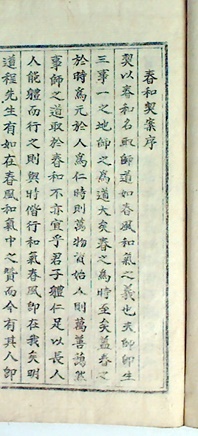 春和契案序
契以春和名取師道如春風和氣之義也夫師卽生
三事一之地師之爲道大矣春之爲時至矣蓋春之
於時爲元於人爲仁時則萬物資始人則萬善藹然
事師之道取於春和不亦宜乎君子體仁足以長人
人能體而行之則與時偕行和氣春風卽在我矣明
道程先生有如在春風和氣中之贊而今有其人卽